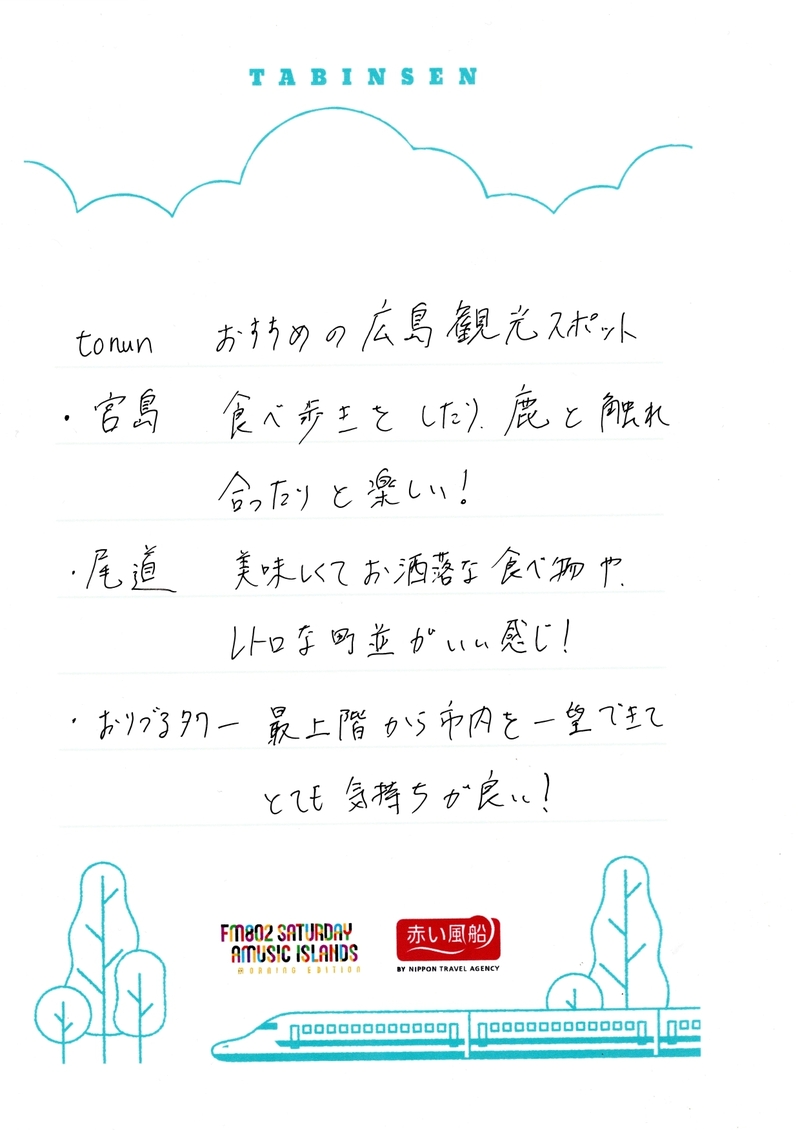 TABINSEN
tonun おすすめの広島観光スポット
・宮島 食べ歩きをしたり、鹿と触れ
合ったりと楽しい!
・尾道 美味しくてお洒落な食べ物や、
レトロな町並がいい感じ!
・おりづるタワー 最上階から市内を一望できて
とても気持ちが良い!
FM802 SATURDAY
AMUSIC ISLANDS
MORNING EDITION
赤い風船
BY NIPPON TRAVEL AGENCY